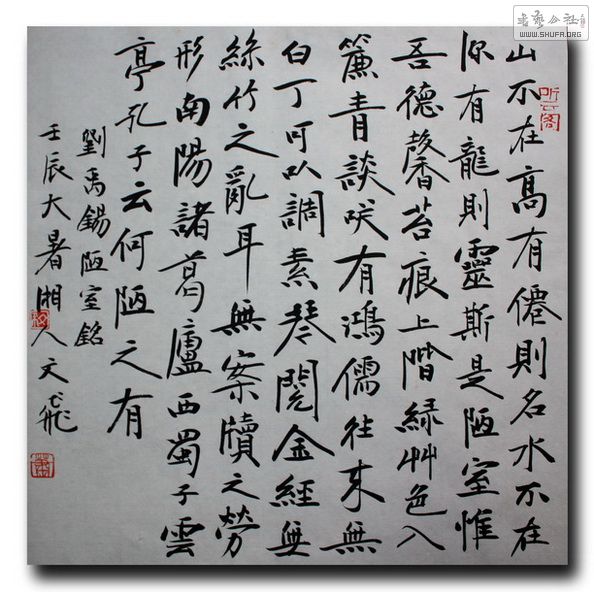 山不在高有僊則名水不在
深有龍則靈斯是陋室惟
吾德馨苔痕上階緑艸色入
簾青談咲有鴻儒往来無
白丁可以調素琴閱金經無
絲竹之亂耳無案牘之勞
形南陽諸葛廬西蜀子雲
亭孔子云何陋之有
劉禹錫陋室銘
壬辰大暑湘人文飛
听云阁
书艺公社
WWW.SHUFA.ORG